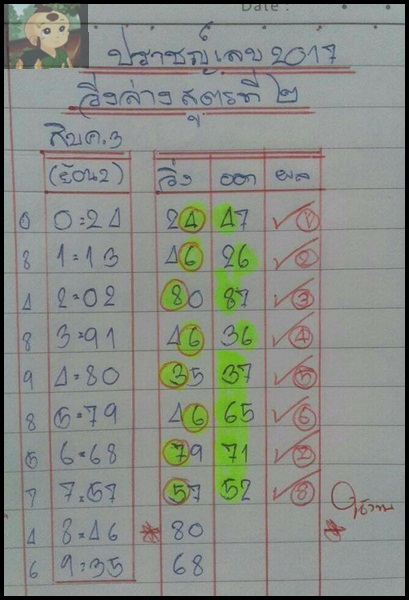 Date :
ปราชญ์เลข 2017
วิ่งล่าง สูตรที่ ๒
สิบค.3
(ย้อน2) วิ่ง ออก ผล
0 0=24 24 47 ✓ 1
8 1=13 46 26 ✓ 2
4 2=02 80 87 ✓ 3
8 3=91 46 36 ✓ 4
9 4=80 35 37 ✓ 5
8 5=79 46 65 ✓ 6
5 6=68 79 71 ✓ 7
7 7=57 57 52 ✓ 8
4 8=46 * 80 *
6 9=35 68